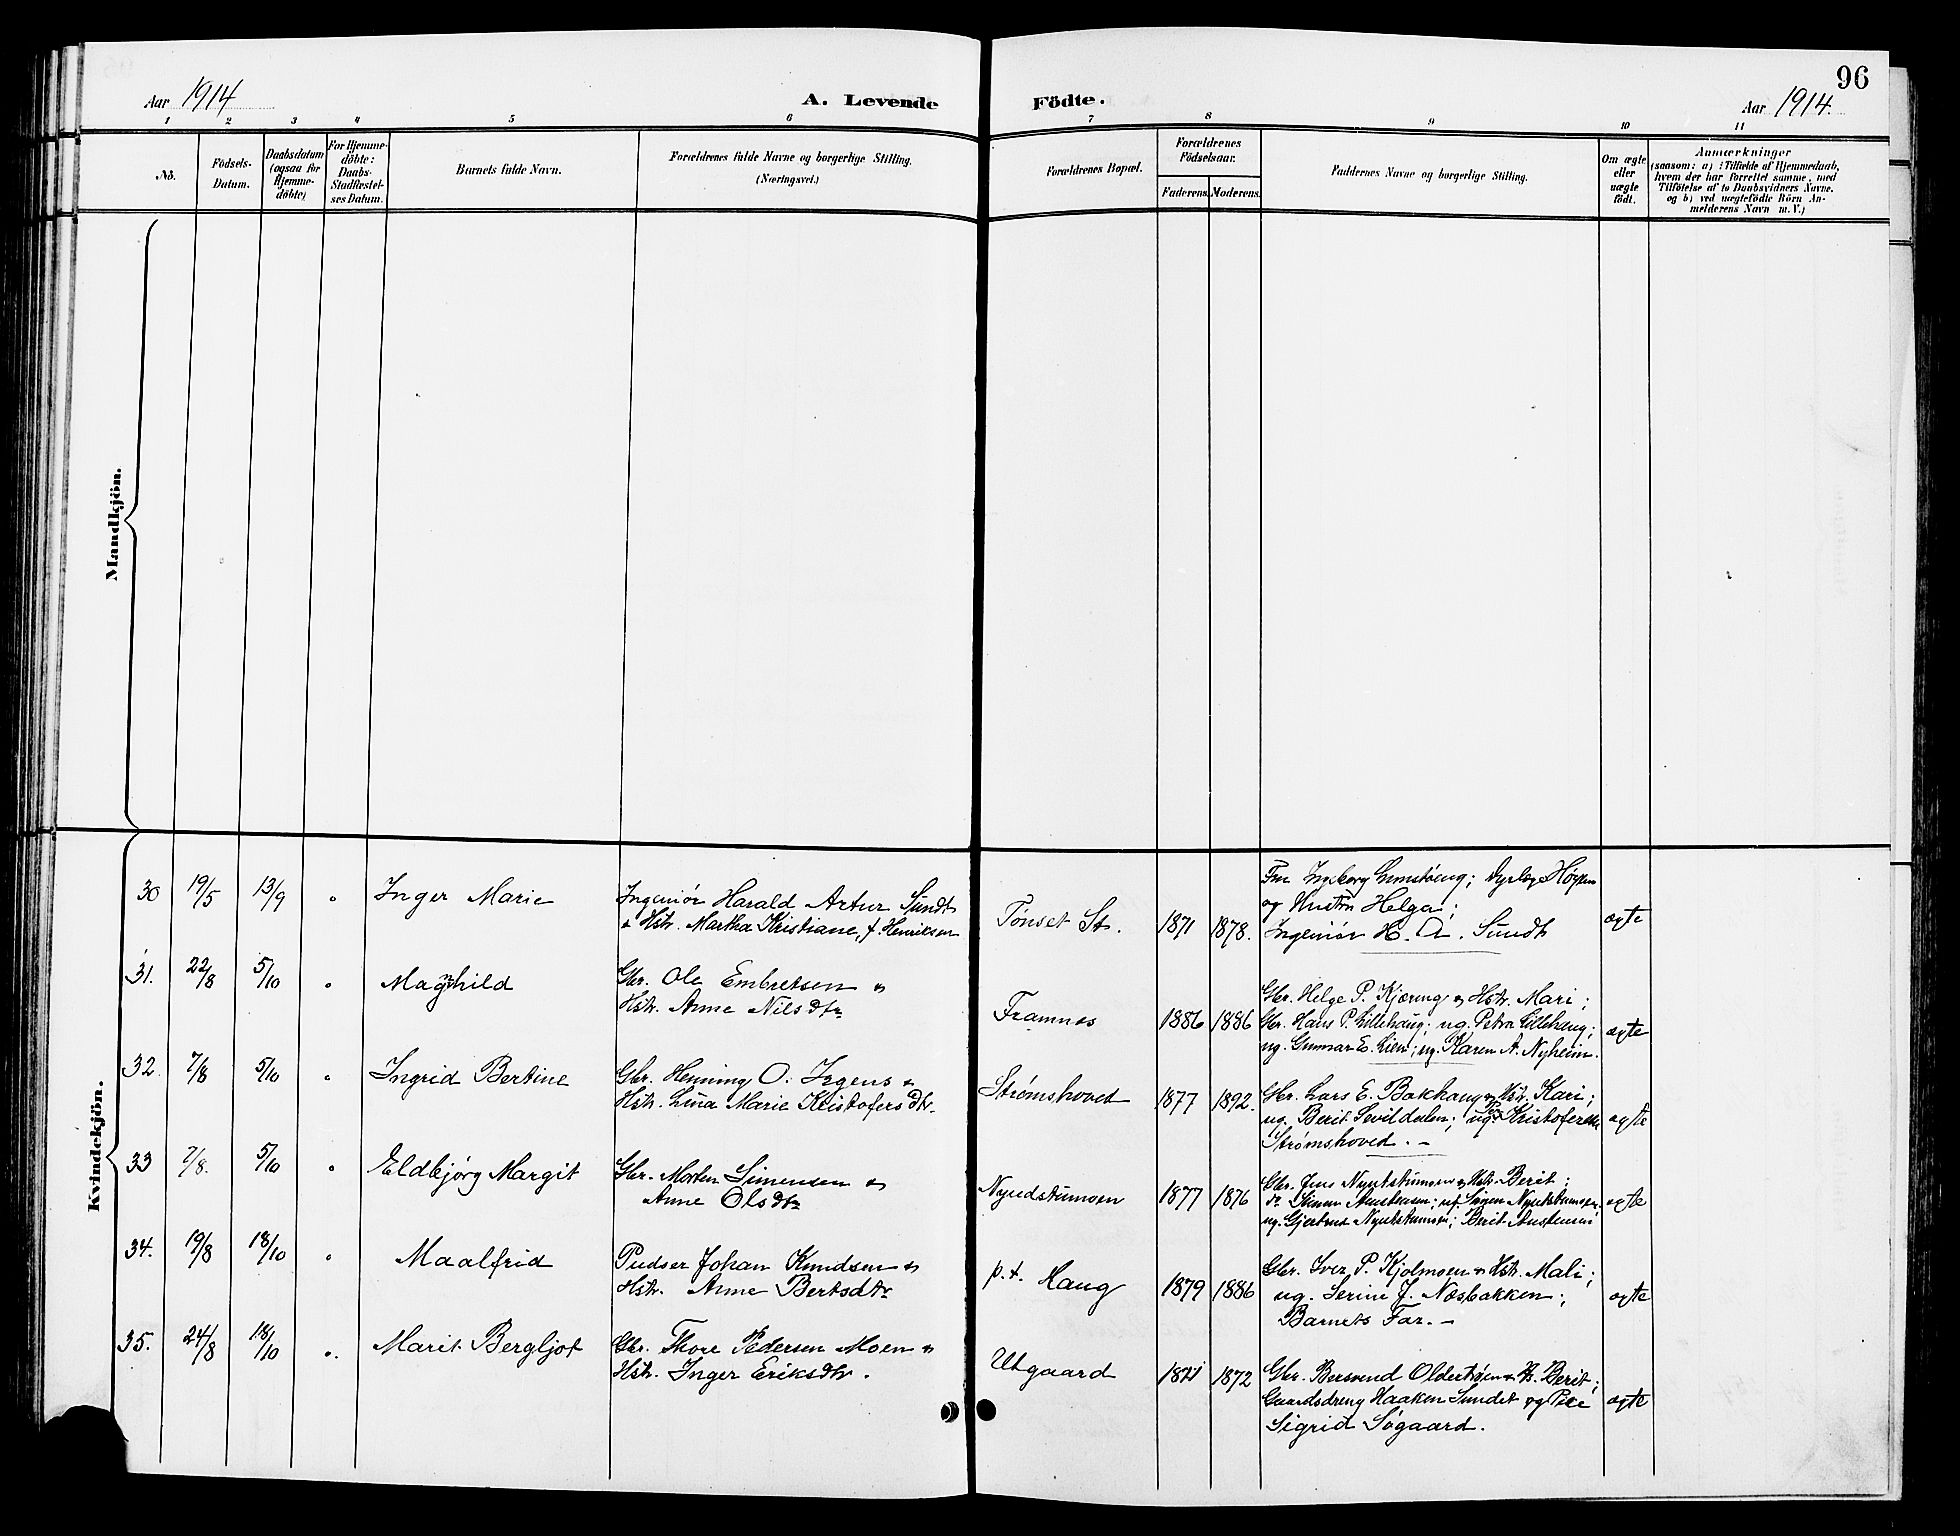 96
Aar 1914
A. Levende
Födte.
Aar 1914.
1 2 3 4 5 6 7 8 9 10 11
No.
Födsels-
Datum.
Daabsdatum
(ogsaa for
Hjemme-
döbte)
For Hjemme-
döbte:
Daabs-
Stadfæstel-
ses Datum.
Barnets fulde Navn.
Forældrenes fulde Navne og borgerlige Stilling.
(Næringsvei.)
Forældrenes Bopæl.
Forældrenes
Födselsaar.
Faderens. Moderens.
Faddernes Navne og borgerlige Stilling.
Om ægte
eller
uægte
födt.
Anmærkninger
(saasom: a) i Tilfælde af Hjemmedaab,
hvem der har forrettet samme, med
Tilföielse af to Daabsvidners Navne.
og b) ved uægtefödte Börn An-
melderens Navn m. V.)
Mandkjön.
Kvindekjön.
30 19/5 13/9 " Inger Marie
Ingeniør Harald Artur Sundt
& Hstr. Martha Kristiane, f. Henriksen
Tönset St. 1871 1878.
Fru Ingeborg
og Hustru Helga;
Ingeniör H. A. Sundt
ægte
31. 22/8 5/10 " Magnhild
Gbr. Ole Embretsen &
Hstr. Anne Nilsdtr
Framnes 1886 1886
Gbr. Helge P. Kjæreng & Hstr. Mari;
Gbr. Hans P. Lillehaug; ug. Petra Lillehaug;
ug. Gunnar E. Lien; ug. Karen A. Nyheim.
ægte
32 7/8 5/10 " Ingrid Bertine
Gbr. Henning O. Irgens &
Hstr. Lina Marie Kristofersdtr.
Strømshoved 1877 1892.
Gbr. Lars E. Bakhaug & Hst. Kari;
ug. Berit Sevildalen; ug. Kristoffer
Strømshoved. -
ægte
33 7/8. 5/10 " Eldbjørg Margit
Gbr. Morten Simensen &
Anne Olsdtr
Nyudstumoen 1877 1876
Gbr. Jens Nyutstumoen & Hstr. Berit;
do Simen Austensen; uf. Simen Nyutstumoen.
ug. Gjertrud Nyutstumoen; Berit Austensen
ægte
34. 19/8 18/10 " Maalfrid
Pudser Johan Knudsen &
Hstr. Anne Bertsdtr
p.t. Haug 1879 1886
Gbr. Iver P. Kjølmoen & Hstr. Mali;
ug. Serine J. Næsbakken;
Barnets Far. -
ægte
35. 24/8 18/10 ". Marit Bergljot
Gbr. Thore Pedersen Moen &
Hstr. Inger Eriksdtr.
Utgaard 1871 1872
Gbr. Bersvend Oldertrøen & H. Berit;
Gaardsdreng Haaken Sundet og Pike
Sigrid Søgaard.
ægte